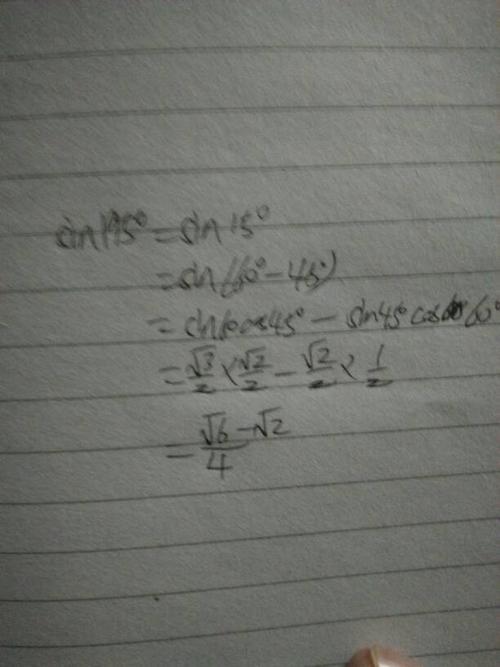 sin195°=sin15°
=sin(60°-45°)
=sin60cos45°-sin45°cos60°
=√3/2×√2/2-√2/2×1/2
=√6-√2/4